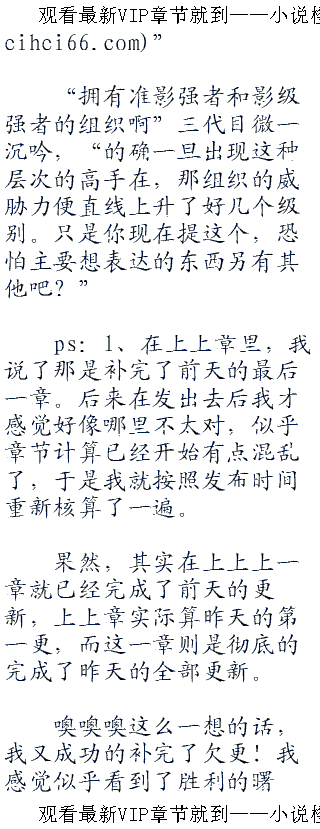 观看最新VIP章节就到——小说检
cihci66.com)”
“拥有准影强者和影级
强者的组织啊”三代目微一
沉吟，“的确一旦出现这种
层次的高手在，那组织的威
胁力便直线上升了好几个级
别。只是你现在提这个，恐
怕主要想表达的东西另有其
他吧？”
ps：1、在上上章里，我
说了那是补完了前天的最后
一章。后来在发出去后我才
感觉好像哪里不太对，似乎
章节计算已经开始有点混乱
了，于是我就按照发布时间
重新核算了一遍。
果然，其实在上上上一
章就已经完成了前天的更
新，上上章实际算昨天的第
一更，而这一章则是彻底的
完成了昨天的全部更新。
噢噢噢这么一想的话，
我又成功的补完了欠更！我
感觉似乎看到了胜利的曙
观看最新VIP章节就到——小说检